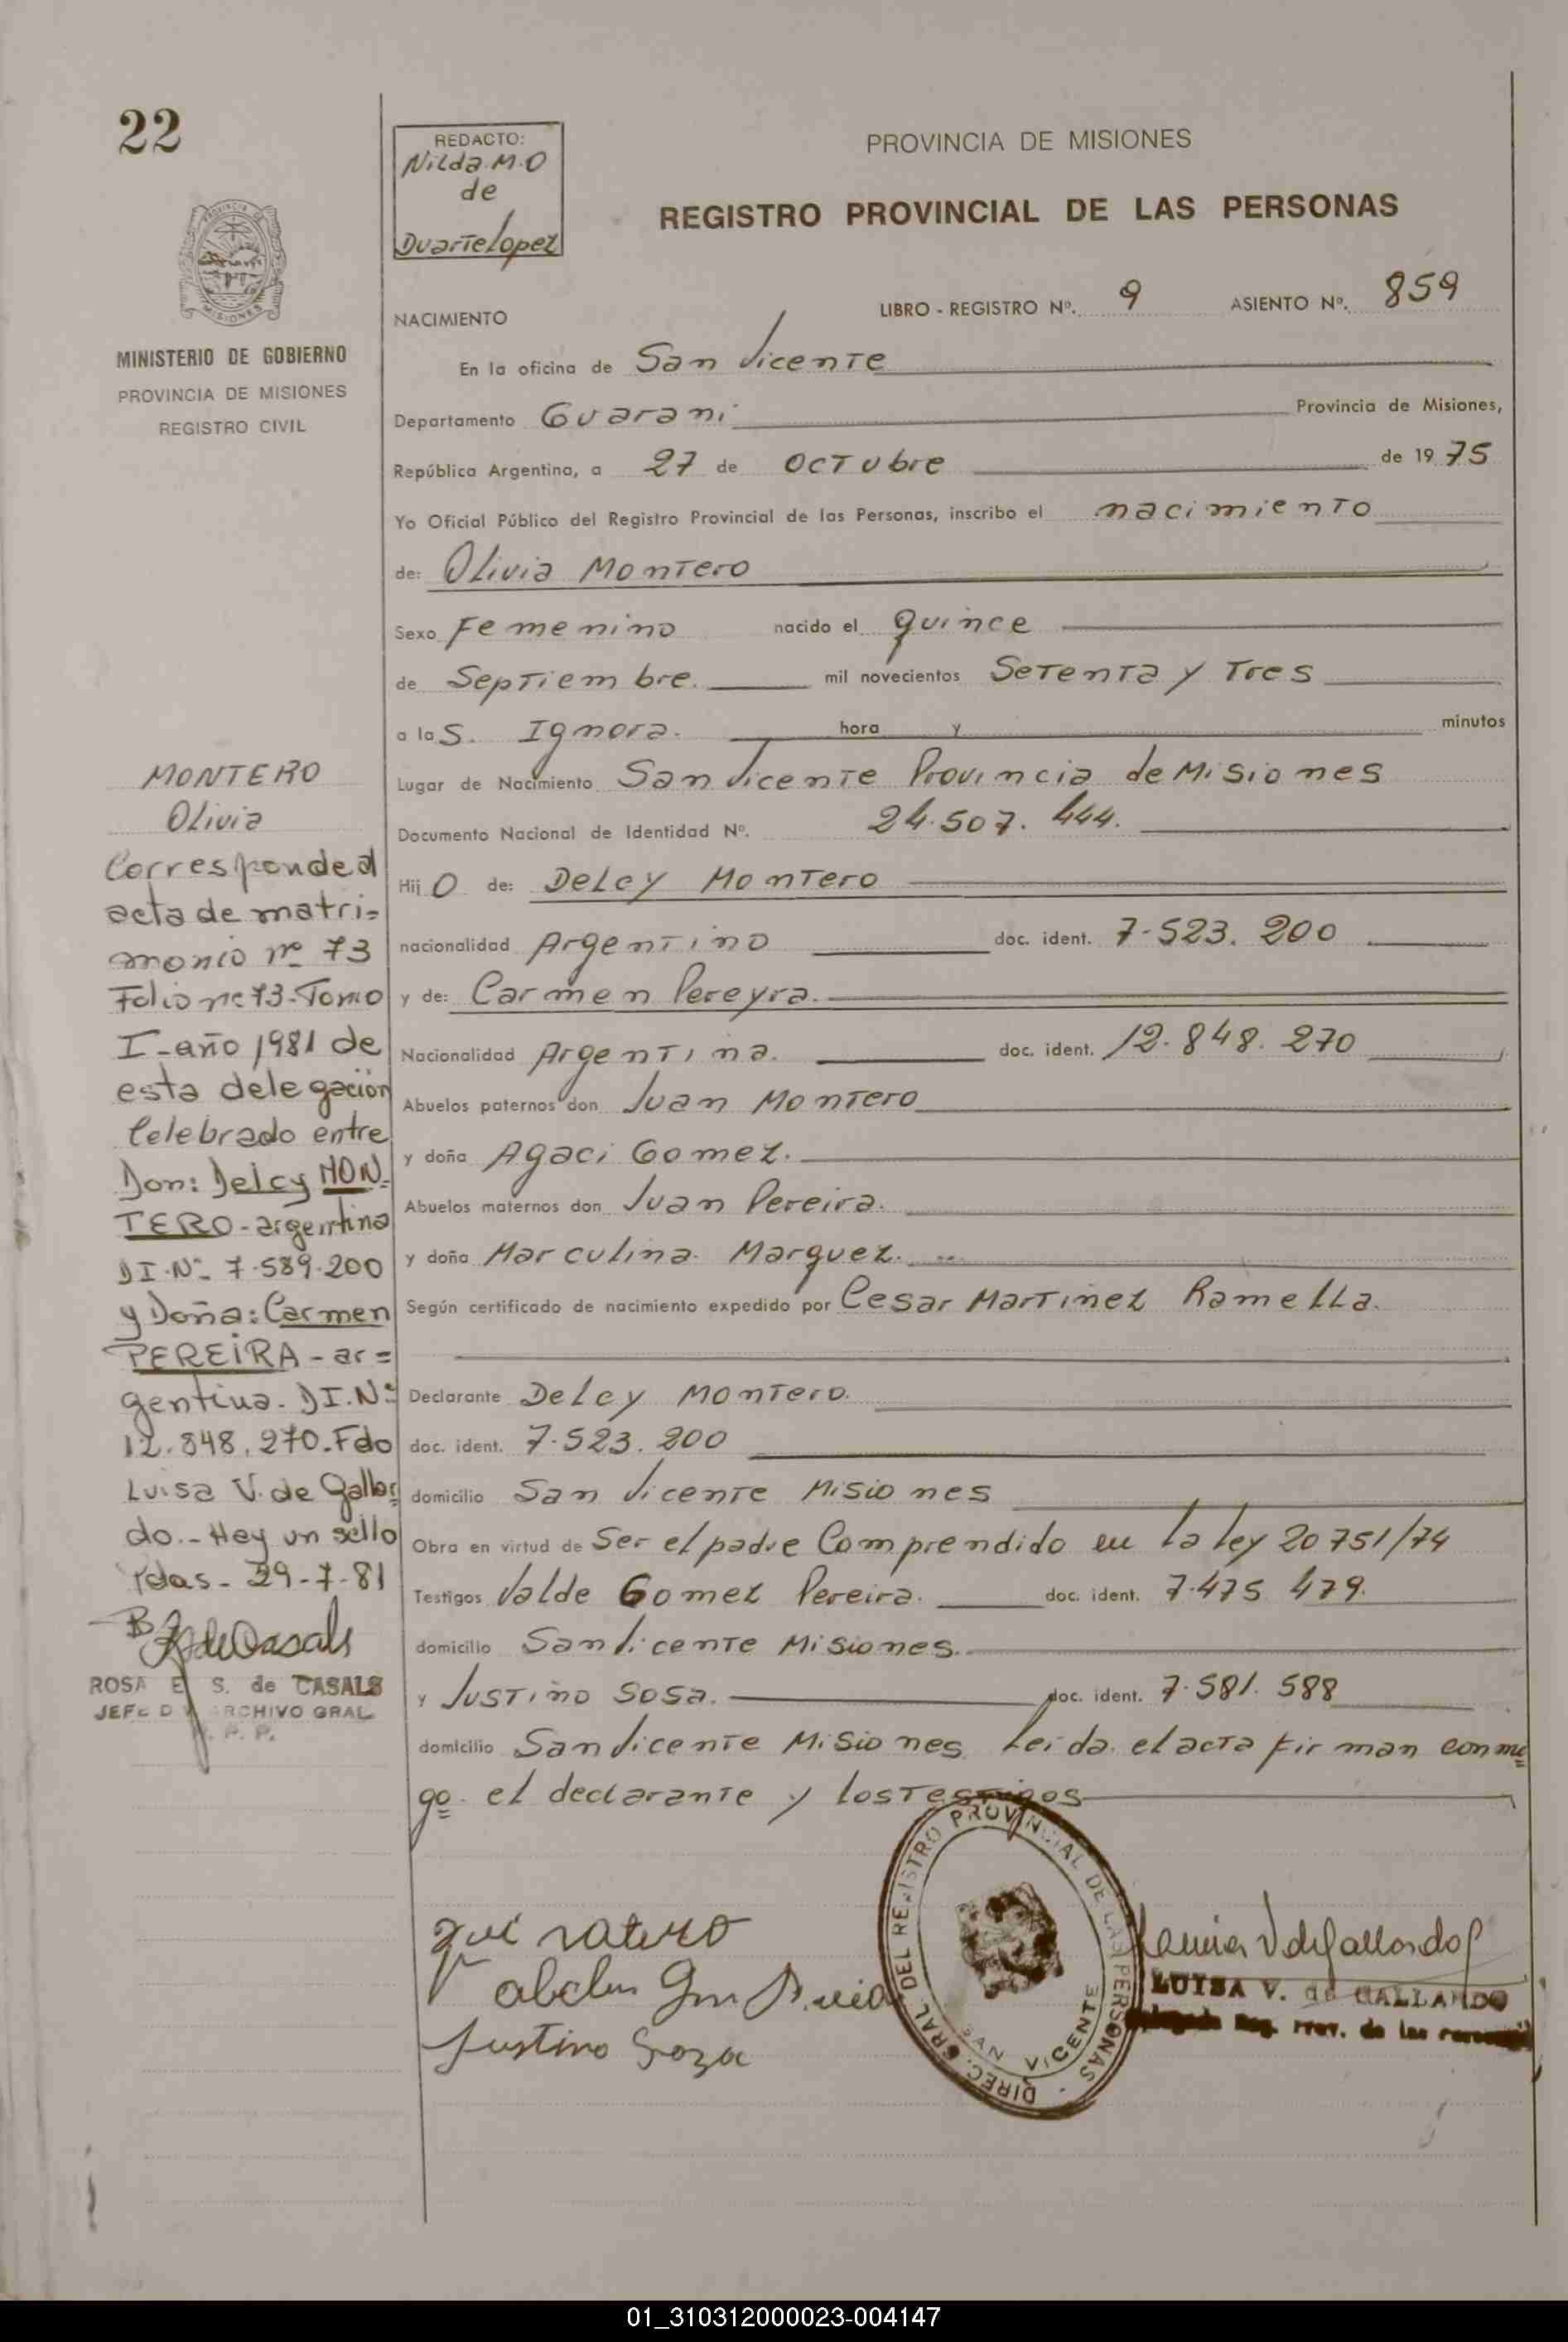 22
REDACTO:
Nilda.M.O
de
Duarte Lopez
PROVINCIA DE MISIONES
REGISTRO PROVINCIAL DE LAS PERSONAS
PROVINCIA DE
MISIONES
MINISTERIO DE GOBIERNO
PROVINCIA DE MISIONES
REGISTRO CIVIL
LIBRO - REGISTRO Nº. 9 ASIENTO Nº. 859
NACIMIENTO
En la oficina de San Vicente
Departamento Guarani Provincia de Misiones,
República Argentina, a 27 de Octubre de 19 75
Yo Oficial Público del Registro Provincial de las Personas, inscribo el nacimiento
de: Olivia Montero
Sexo Femenino nacido el quince
de Septiembre. mil novecientos Setenta y Tres
a las. Ignora. hora y minutos
Lugar de Nacimiento San Vicente Provincia de Misiones
Documento Nacional de Identidad Nº. 24.507.444.
Hij O de: Delcy Montero
nacionalidad Argentino doc. ident. 7.523.200
y de: Carmen Pereyra.
Nacionalidad Argentina. doc. ident. 12.848.270
Abuelos paternos don Juan Montero
y doña Agaci Gomez.
Abuelos maternos don Juan Pereira.
y doña Marculina Marquez.
Según certificado de nacimiento expedido por Cesar Martinez Ramella.
Declarante Delcy Montero.
doc. ident. 7.523.200
domicilio San Vicente Misiones
Obra en virtud de Ser el padre Comprendido en la ley 20751/74
Testigos Valde Gomez Pereira. doc. ident. 7.475 479.
domicilio San Vicente Misiones.
y Justino Sosa. doc. ident. 7.581.588
domicilio San Vicente Misiones Leida el acta firman conmi=
go el declarante y los Testigos
MONTERO
Olivia
Corresponde al
acta de matri=
monio nº 73
Folio nº 73-Tomo
I-año 1981 de
esta delegación
Celebrado entre
Don: Delcy MON=
TERO-argentino
DI.Nº 7.589.200
y Doña: Carmen
PEREIRA-ar=
gentina. DI.Nº
12.848.270.Fdo
Luisa V. de Gallar=
do.-Hay un sello
Pdas-29-7-81
ROSA E. S. de CASALS
JEFE DIV. ARCHIVO GRAL
R. P. P.
Justino Soza
DIREC. GRAL. DEL REGISTRO PROVINCIAL DE LAS PERSONAS
SAN VICENTE
LUISA V. de GALLARDO
Delegada Reg. Prov. de las Personas
01_310312000023-004147